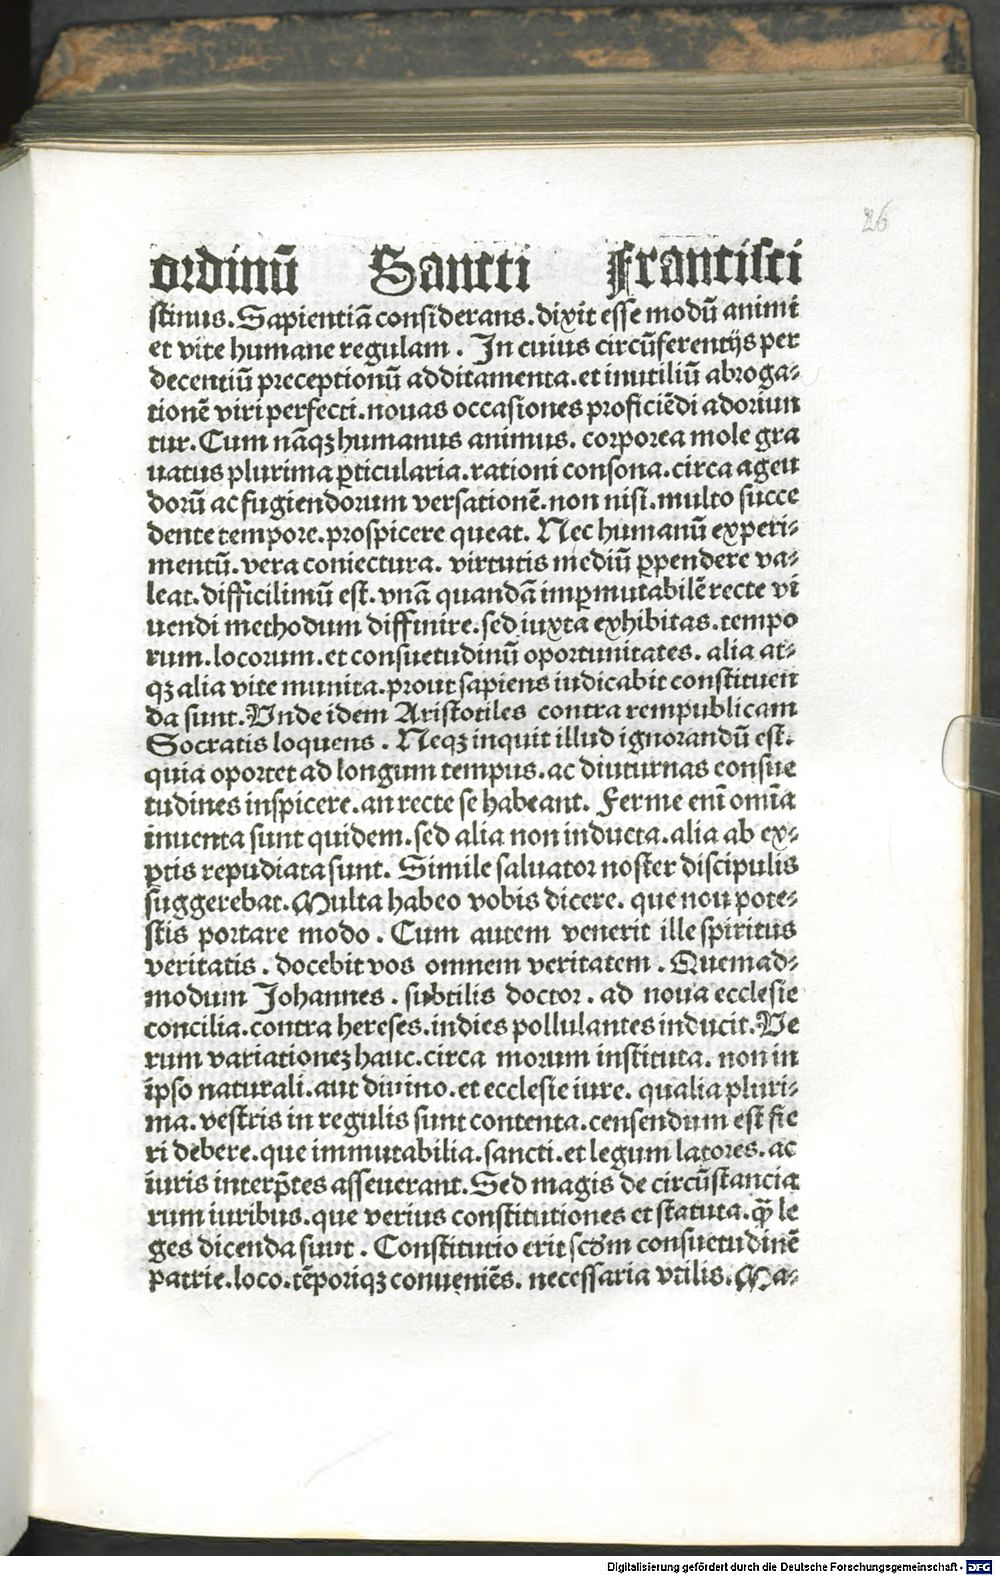 26
ordinū Sancti Francisci
stinus. Sapientiā considerans. dixit esse modū animi
et vite humane regulam. In cuius circūferentijs per
decentiū preceptionū additamenta. et inutiliū abroga⸗
tionē viri perfecti. nouas occasiones proficiēdi adoriun
tur. Cum nāqꝫ humanus animus. corporea mole gra
uatus plurima ꝑticularia. rationi consona. circa agen
dorū ac fugiendorum versationē. non nisi. multo succe
dente tempore. prospicere queat. Nec humanū experi⸗
mentū. vera coniectura. virtutis mediū ꝑpendere va⸗
leat. difficilimū est. vnā quandā imꝑmutabilē recte vi
uendi methodum diffinire. sed iuxta exhibitas. tempo
rum. locorum. et consuetudinū oportunitates. alia at⸗
qꝫ alia vite munita. prout sapiens iudicabit constituen
da sunt. Vnde idem Aristotiles contra rempublicam
Socratis loquens. Neqꝫ inquit illud ignorandū est.
quia oportet ad longum tempus. ac diuturnas consue
tudines inspicere. an recte se habeant. Ferme enī omīa
inuenta sunt quidem. sed alia non inducta. alia ab ex⸗
ꝑtis repudiata sunt. Simile saluator noster discipulis
suggerebat. Multa habeo vobis dicere. que non pote⸗
stis portare modo. Cum autem venerit ille spiritus
veritatis. docebit vos omnem veritatem. Quemad⸗
modum Johannes. subtilis doctor. ad noua ecclesie
concilia. contra hereses. indies pollulantes inducit. Ve
rum variationeꝫ hanc. circa morum instituta. non in
ipso naturali. aut diuino. et ecclesie iure. qualia pluri⸗
ma. vestris in regulis sunt contenta. censendum est fie
ri debere. que immutabilia. sancti. et legum latores. ac
iuris interp̄tes asseuerant. Sed magis de circūstancia
rum iuribus. que verius constitutiones et statuta. ꝙ̄ le
ges dicenda sunt. Constitutio erit scd̄m consuetudinē
patrie. loco. tēporiqꝫ conueniēs. necessaria vtilis. Ma⸗
Digitalisierung gefördert durch die Deutsche Forschungsgemeinschaft - DFG